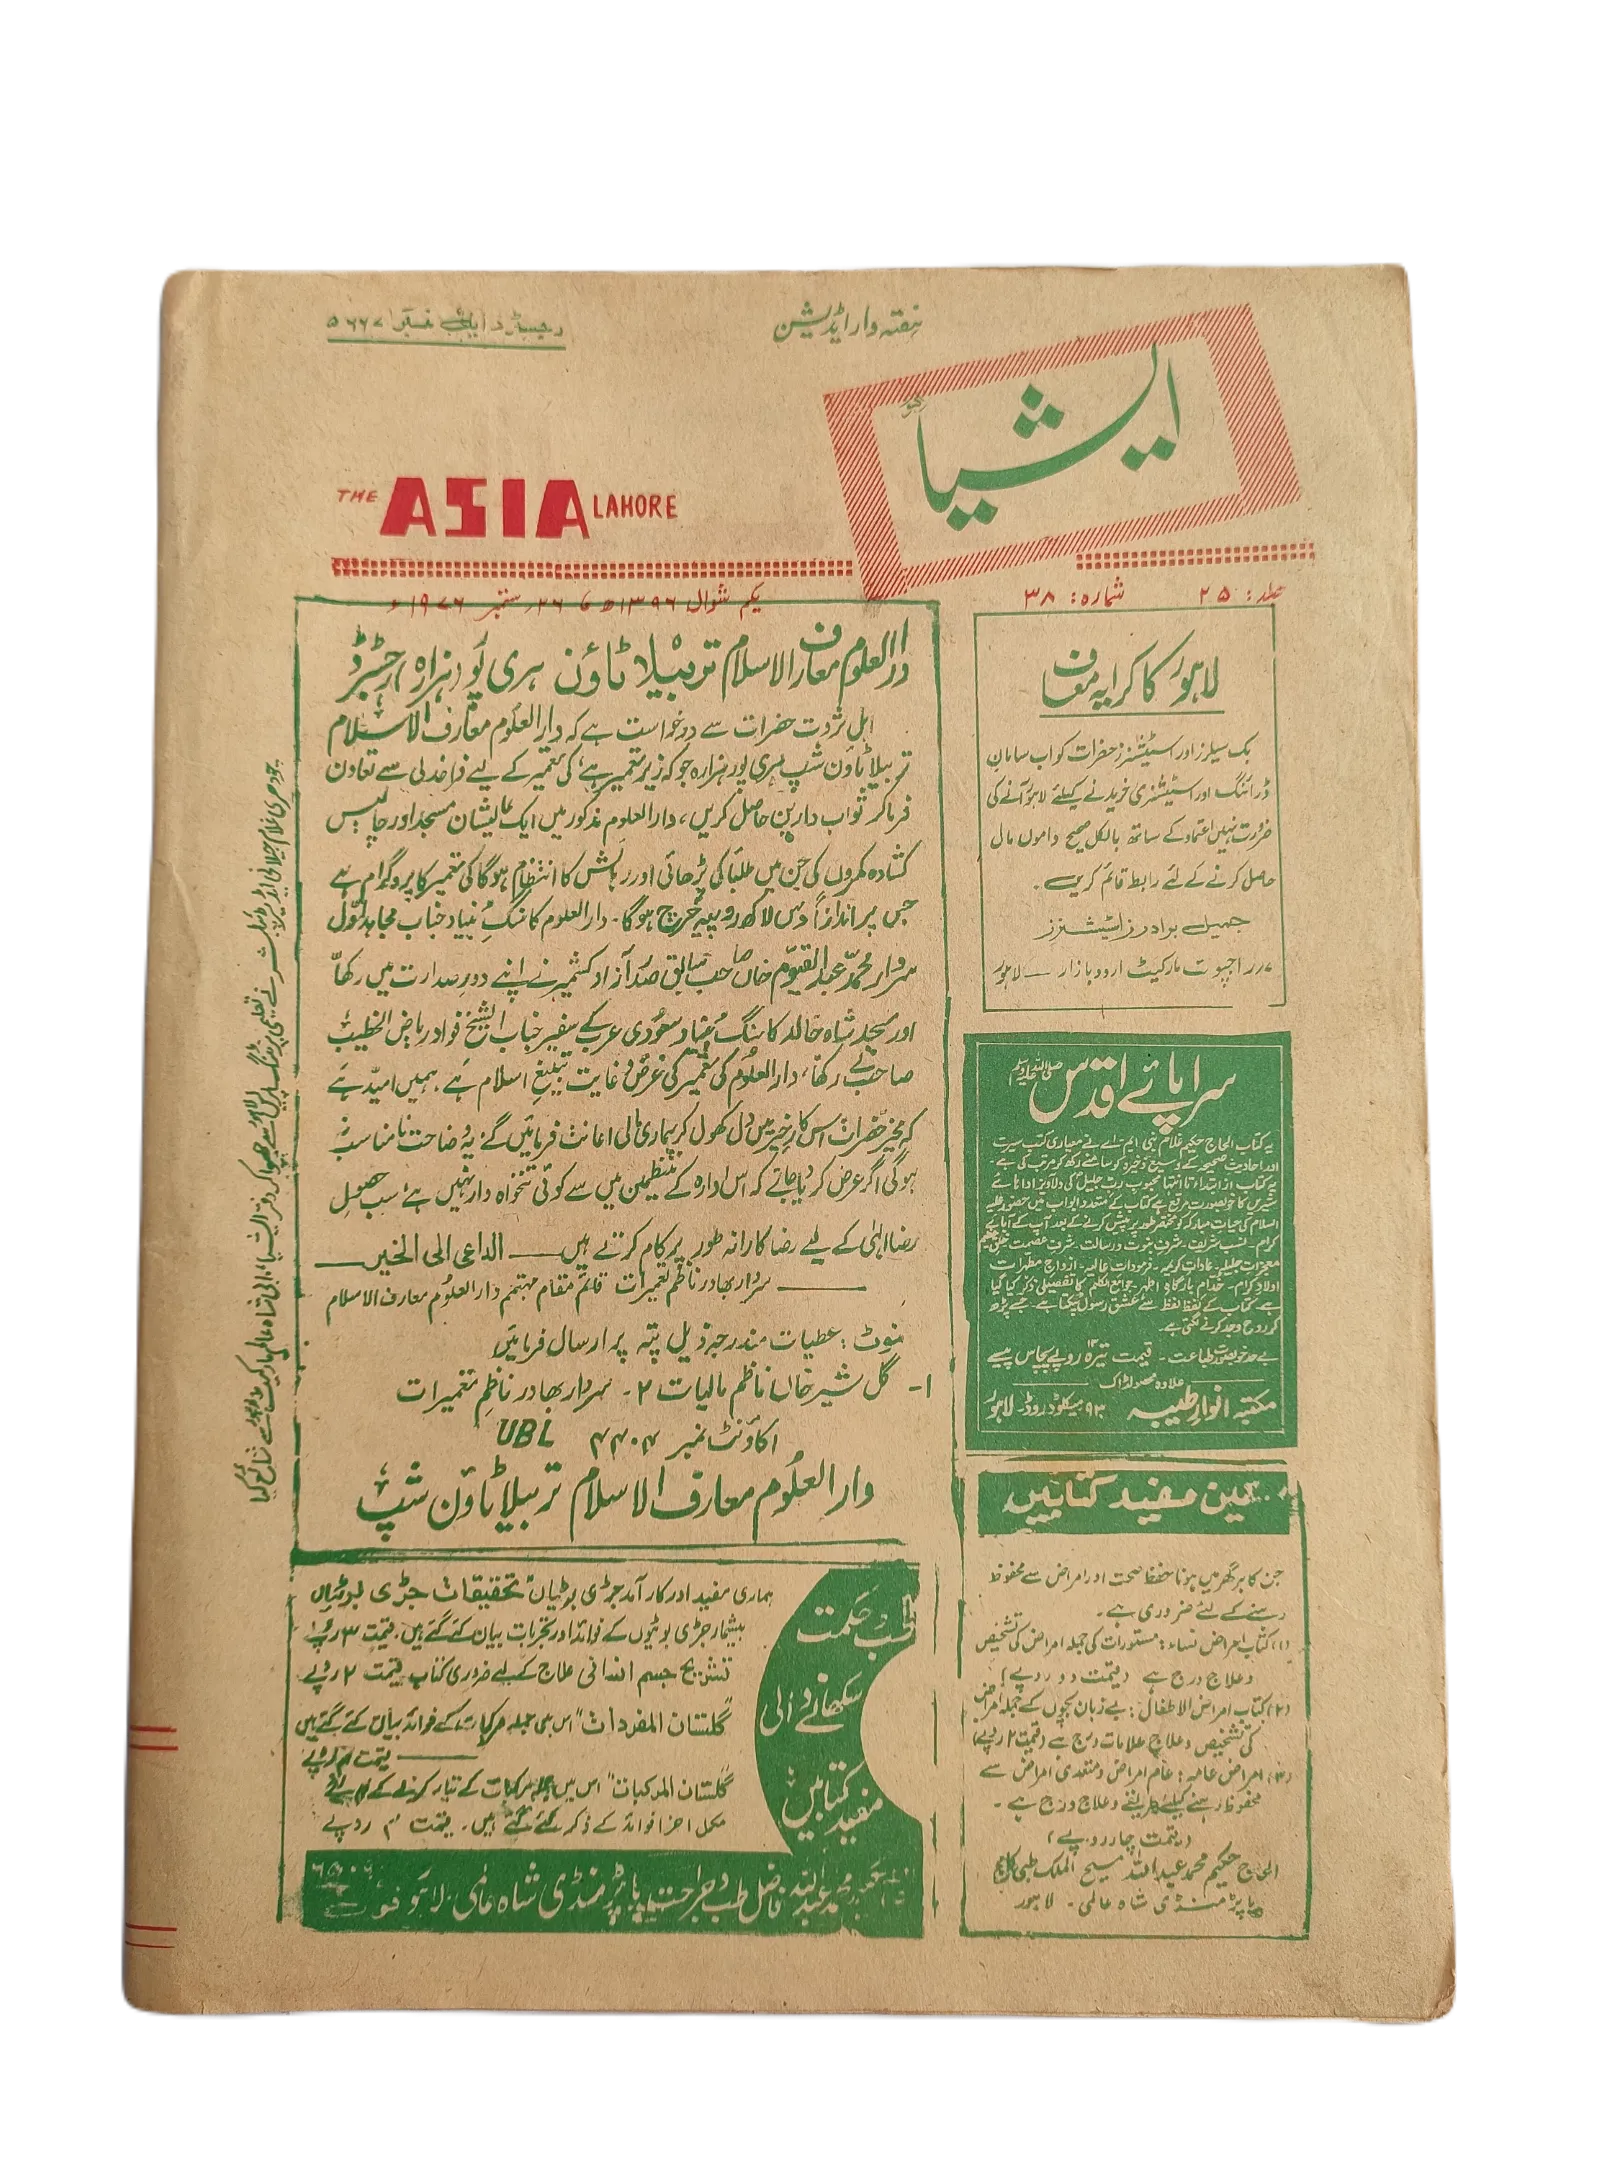 ہفتہ وار ایڈیشن
رجسٹرڈ ایل نمبر ۵۶۶۷
ایشیا
لاہور
THE ASIA LAHORE
جلد: ۲۵ شمارہ: ۳۸
یکم شوال ۱۳۹۶ھ ۲۶ ستمبر ۱۹۷۶ء
دارالعلوم معارف الاسلام تربیلا ٹاؤن ہری پور (ہزارہ) رجسٹرڈ
اہل ثروت حضرات سے درخواست ہے کہ دارالعلوم معارف الاسلام
تربیلا ٹاؤن شپ ہری پور ہزارہ جو کہ زیر تعمیر ہے کی تعمیر کے لیے فراخدلی سے تعاون
فرما کر ثواب دارین حاصل کریں، دارالعلوم مذکور میں ایک عالیشان مسجد اور چالیس
کشادہ کمروں کی جن میں طلبا کی پڑھائی اور رہائش کا انتظام ہوگا کی تعمیر کا پروگرام ہے
جس پر اندازاً دس لاکھ روپیہ خرچ ہوگا۔ دارالعلوم کا سنگِ بنیاد جناب مجاہد اول
سردار محمد عبدالقیوم خاں صاحب سابق صدر آزاد کشمیر نے اپنے دورِ صدارت میں رکھا
اور مسجد شاہ خالد کا سنگ بنیاد سعودی عرب کے سفیر جناب الشیخ فواد ریاض الخطیب
صاحب نے رکھا، دارالعلوم کی تعمیر کی غرض و غایت تبلیغ اسلام ہے، ہمیں امید ہے
کہ مخیر حضرات اس کارِ خیر میں دل کھول کر ہماری مالی اعانت فرمائیں گے یہ وضاحت نامناسب نہ
ہوگی اگر عرض کر دیا جائے کہ اس ادارہ کے منتظمین میں سے کوئی تنخواہ دار نہیں ہے سب حصولِ
رضا الٰہی کے لیے رضاکارانہ طور پر کام کرتے ہیں — الداعی الی الخیر —
— سردار بہادر ناظم تعمیرات قائم مقام مہتمم دارالعلوم معارف الاسلام
نوٹ: عطیات مندرجہ ذیل پتہ پر ارسال فرمائیں
۱- گل شیر خاں ناظم مالیات ۲- سردار بہادر ناظم تعمیرات
اکاؤنٹ نمبر ۴۴۰۴ UBL
دارالعلوم معارف الاسلام تربیلا ٹاؤن شپ
لاہور کا کرایہ معاف
بک سیلرز اور اسٹیشنرز حضرات کو اب سامان
ڈرائنگ اور اسٹیشنری خریدنے کیلئے لاہور آنے کی
ضرورت نہیں اعتماد کے ساتھ بالکل صحیح داموں مال
حاصل کرنے کے لئے رابطہ قائم کریں۔
جمیل برادرز اسٹیشنرز
راجپوت مارکیٹ اردو بازار — لاہور
سراپائے اقدس صلی اللہ علیہ وسلم
یہ کتاب الحاج حکیم غلام نبی ایم۔اے نے معیاری کتب سیرت
اور احادیث صحیحہ کے وسیع ذخیرہ کو سامنے رکھ کر مرتب کی ہے۔
یہ کتاب از ابتداء تا انتہا محبوب رب جلیل کی دلآویز اداہائے
شیریں کا خوبصورت مرقع ہے کتاب کے متعدد ابواب میں حضور علیہ
اسلام کی حیات مبارکہ کو مختصر طور پر پیش کرنے کے بعد آپ کے آبائے
کرام۔ نسب شریف۔ شرف نبوت و رسالت۔ شرف عصمت
معجزات جلیلہ۔ عادات کریمہ۔ فرمودات عالیہ۔ ازواج مطہرات
اولاد کرام۔ خدام بارگاہ اطہر۔ جوامع الکلم کا تفصیلی ذکر کیا گیا
ہے کتاب کے لفظ لفظ سے عشق رسول ٹپکتا ہے۔ جسے پڑھ
کر روح وجد کرنے لگتی ہے۔
بے حد خوبصورت طباعت۔ قیمت تیرہ روپے پچاس پیسے
علاوہ محصولڈاک
مکتبہ انوار طیبہ ۹۳ میکلوڈ روڈ۔ لاہور
تین مفید کتابیں
جن کا ہر گھر میں ہونا حفظ صحت اور امراض سے محفوظ
رہنے کے لئے ضروری ہے۔
(۱) کتاب امراض نساء: مستورات کی جملہ امراض کی تشخیص
و علاج درج ہے (قیمت دو روپے)
(۲) کتاب امراض الاطفال: بے زبان بچوں کے جملہ امراض
کی تشخیص و علاج علامات درج ہے (قیمت ۲ روپے)
(۳) امراض عامہ: عام امراض و متعدی امراض سے
محفوظ رہنے کیلئے و علاج درج ہے۔
(قیمت چار روپے)
الحاج حکیم محمد عبداللہ مسیح الملک طبی کالج
پاپڑ منڈی شاہ عالمی۔ لاہور
طب و حکمت
سکھانے والی
مفید کتابیں
ہماری مفید اور کار آمد جڑی بوٹیاں "تحقیقات جڑی بوٹیاں
بیشمار جڑی بوٹیوں کے فوائد اور تجربات بیان کئے گئے ہیں۔ قیمت ۳ روپے
تشریح جسم انسانی علاج کے لیے ضروری کتاب قیمت ۲ روپے
"گلستان المفردات" اس میں جملہ مرکبات کے فوائد بیان کئے گئے ہیں
— قیمت ۴ روپے
"گلستان المرکبات" اس میں جملہ مرکبات کے تیار کرنے کے
مکمل اجزا فوائد کے ذکر کئے گئے ہیں۔ قیمت ۴ روپے
محمد عبداللہ فاضل طب و جراحت پاپڑ منڈی شاہ عالمی لاہور فون
چودھری غلام جیلانی ایڈیٹر و پبلشر نے تعلیمی پرنٹنگ پریس لاہور سے چھپوا کر دفتر ایشیا، شاہ عالم مارکیٹ لاہور سے شائع کیا